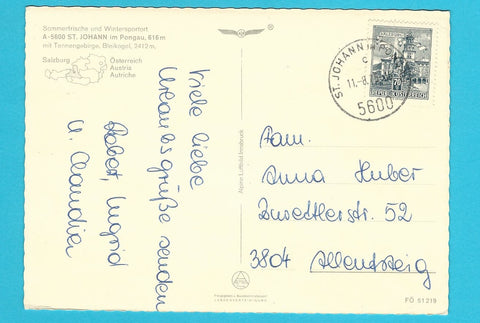 Sommerfrische und Wintersportort
A-5600 ST. JOHANN im Pongau, 616m
mit Tennengebirge, Bleikogel, 2412m,
Salzburg
Österreich
Austria
Autriche
Viele liebe
Urlaubsgrüße senden
Robert, Ingrid
u. Claudia
Alpine Luftbild Innsbruck
ST. JOHANN IM PO
c
11.-8.
5600
REPUBLIK ÖSTERREICH
Fam.
Anna Huber
52
3804 Allentsteig
FÖ 51219